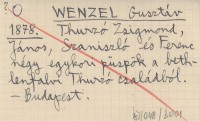 ?O WENZEL Gusztáv
1878. Thurzó Zsigmond,
János, Szaniszló és Ferenc
négy egykori püspök a beth-
lenfalvi Thurzó családból.
– Budapest.